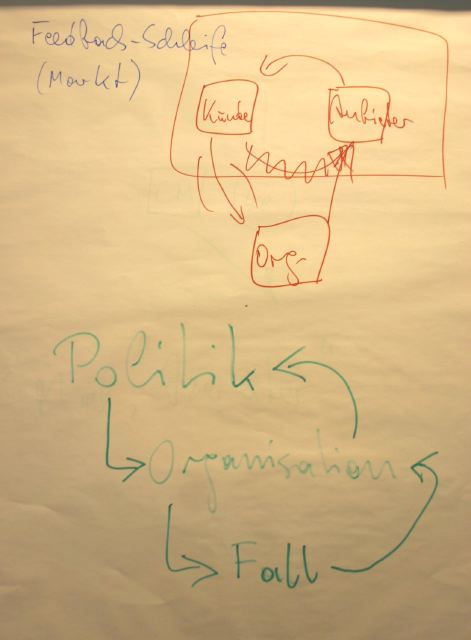 Feedback-Schleife
(Markt)
Kunde
Anbieter
Org.
Politik
Organisation
Fall